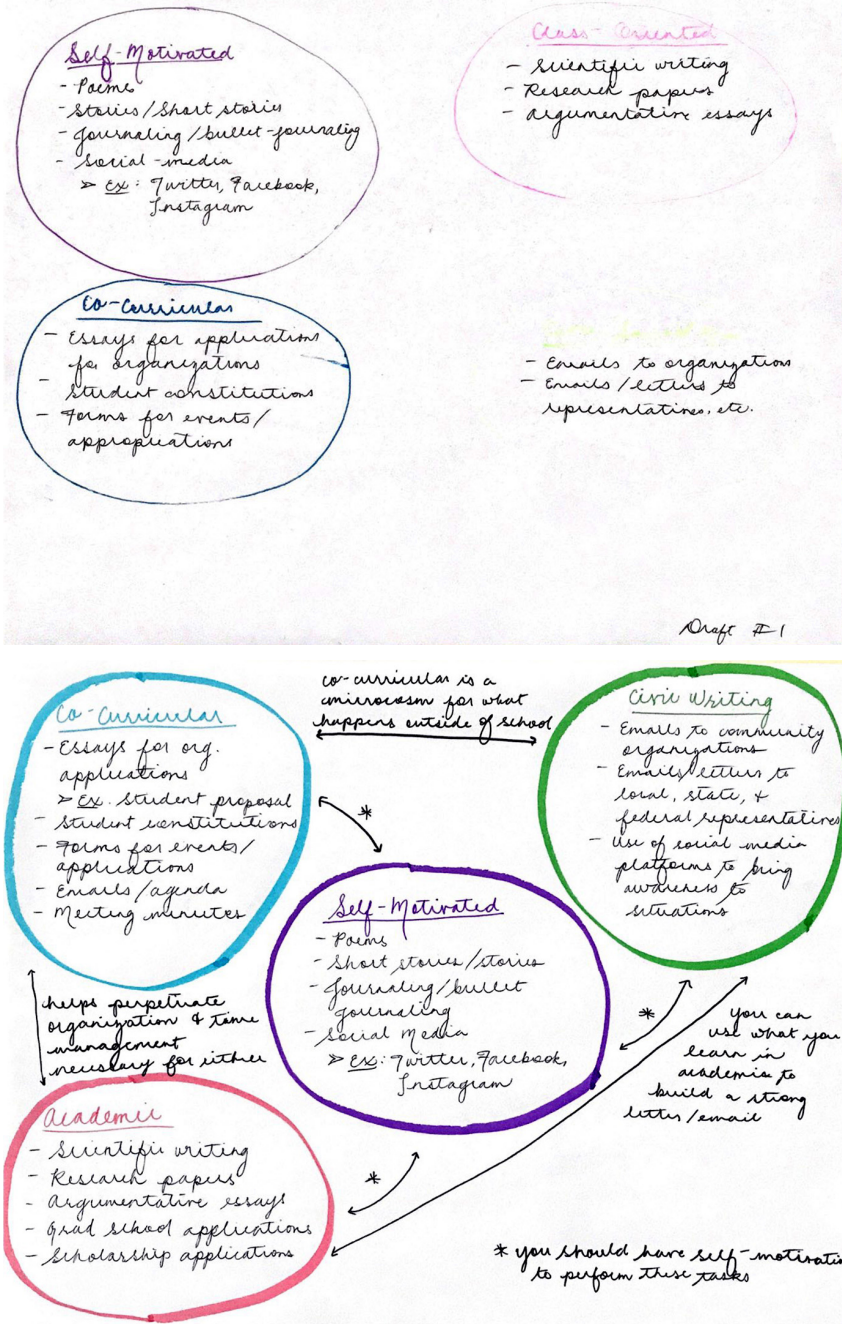 Self-Motivated
- Poems
- Stories/Short stories
- Journaling/bullet-journaling
- Social-media
➢ Ex: Twitter, Facebook,
Instagram
Class-Oriented
- Scientific writing
- Research papers
- Argumentative essays
Co-Curricular
- Essays for applications
for organizations
- Student constitutions
- Forms for events/
appropriations
- Emails to organizations
- Emails/letters to
representatives, etc.
Draft #1
Co-Curricular
- Essays for org.
applications
➢ Ex. Student proposal
- Student constitutions
- Forms for events/
applications
- Emails/agenda
- Meeting minutes
co-curricular is a
microcosm for what
happens outside of school
Civic Writing
- Emails to community
organizations
- Emails/letters to
local, state, &
federal representatives
- Use of social media
platforms to bring
awareness to
situations
*
Self-Motivated
- Poems
- Short stories/stories
- Journaling/bullet
journaling
- Social Media
➢ Ex: Twitter, Facebook,
Instagram
helps perpetrate
organization & time
management
necessary for either
*
you can
use what you
learn in
academic to
build a strong
letter/email
Academic
- Scientific writing
- Research papers
- Argumentative essays
- Grad school applications
- Scholarship applications
*
* you should have self-motivatio
to perform these tasks